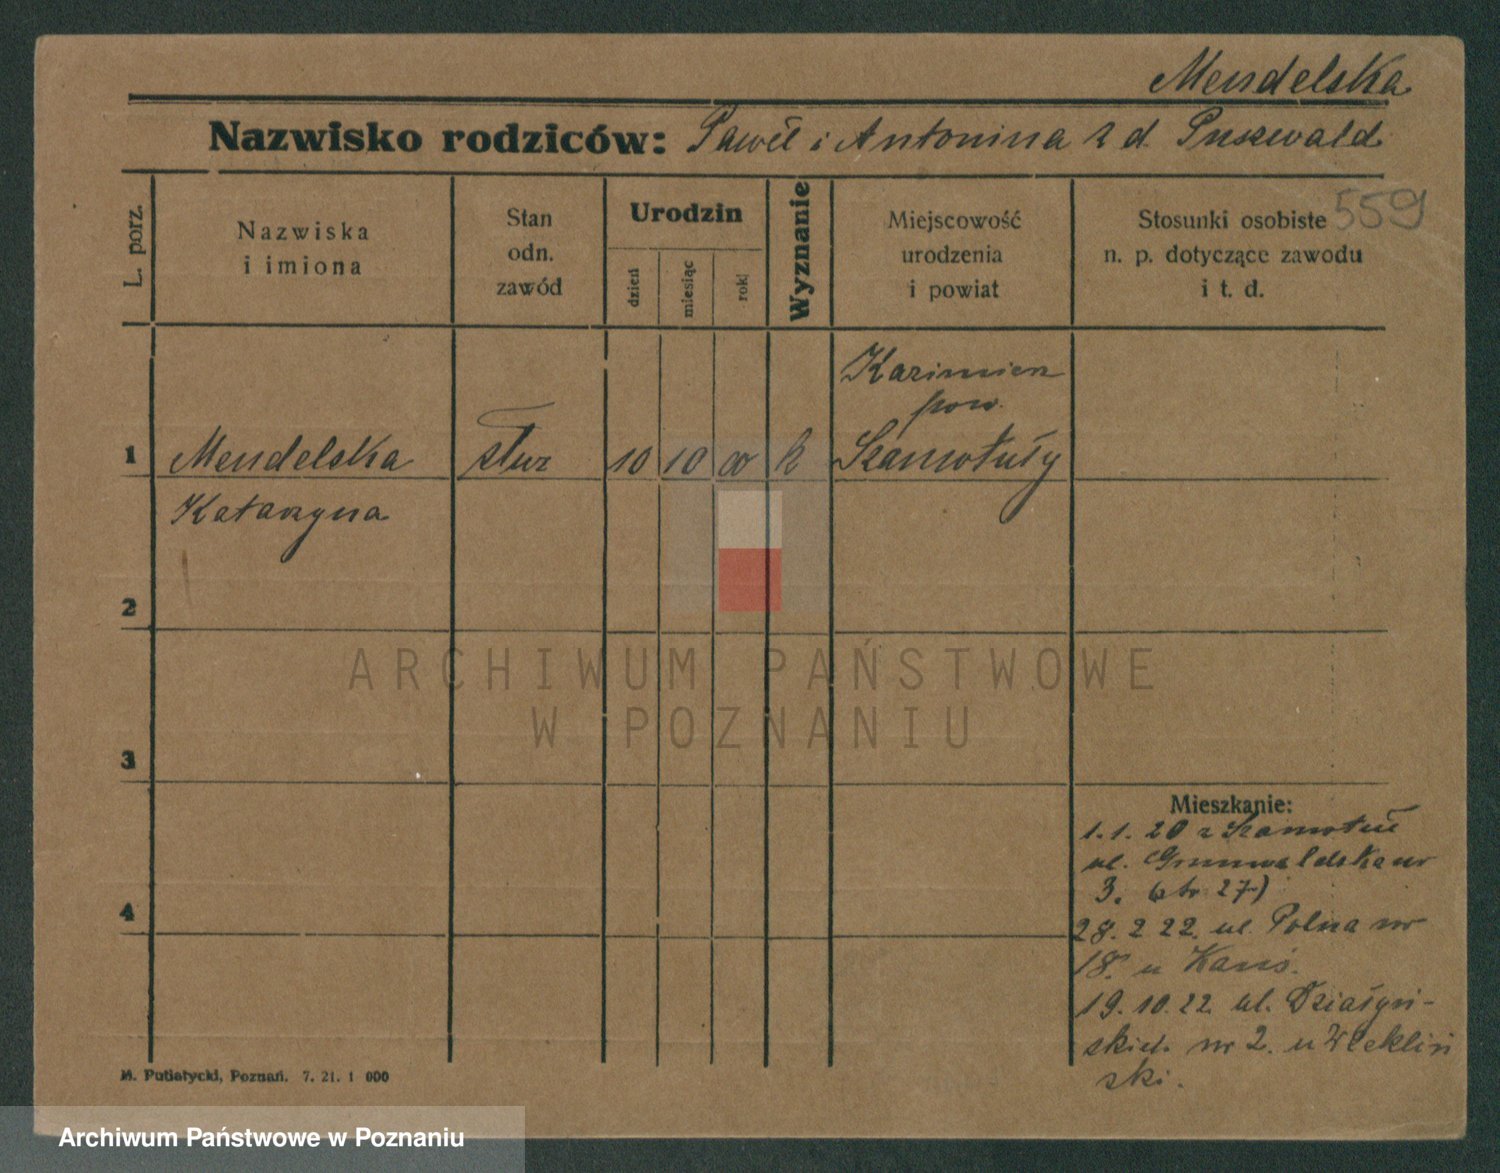 Mendelska
Nazwisko rodziców: Paweł i Antonina z d. Puszwald
559
L. porz.
Nazwiska
i imiona
Stan
odn.
zawód
Urodzin
dzień
miesiąc
rok
Wyznanie
Miejscowość
urodzenia
i powiat
Stosunki osobiste
n. p. dotyczące zawodu
i t. d.
Kazimierz
pow.
1 Mendelska służ 10 10 00 k Szamotuły
Katarzyna
2
ARCHIWUM PAŃSTWOWE
W POZNANIU
3
Mieszkanie:
1.1.20 z Szamotuł
ul. Grunwaldska nr
3. (tr 27)
4
28.2 22. ul. Polna nr
18. u
19.10.22. ul. Działyń-
skich nr 2. u
ski.
M. Putiatycki, Poznań. 7. 21. 1 000
Archiwum Państwowe w Poznaniu